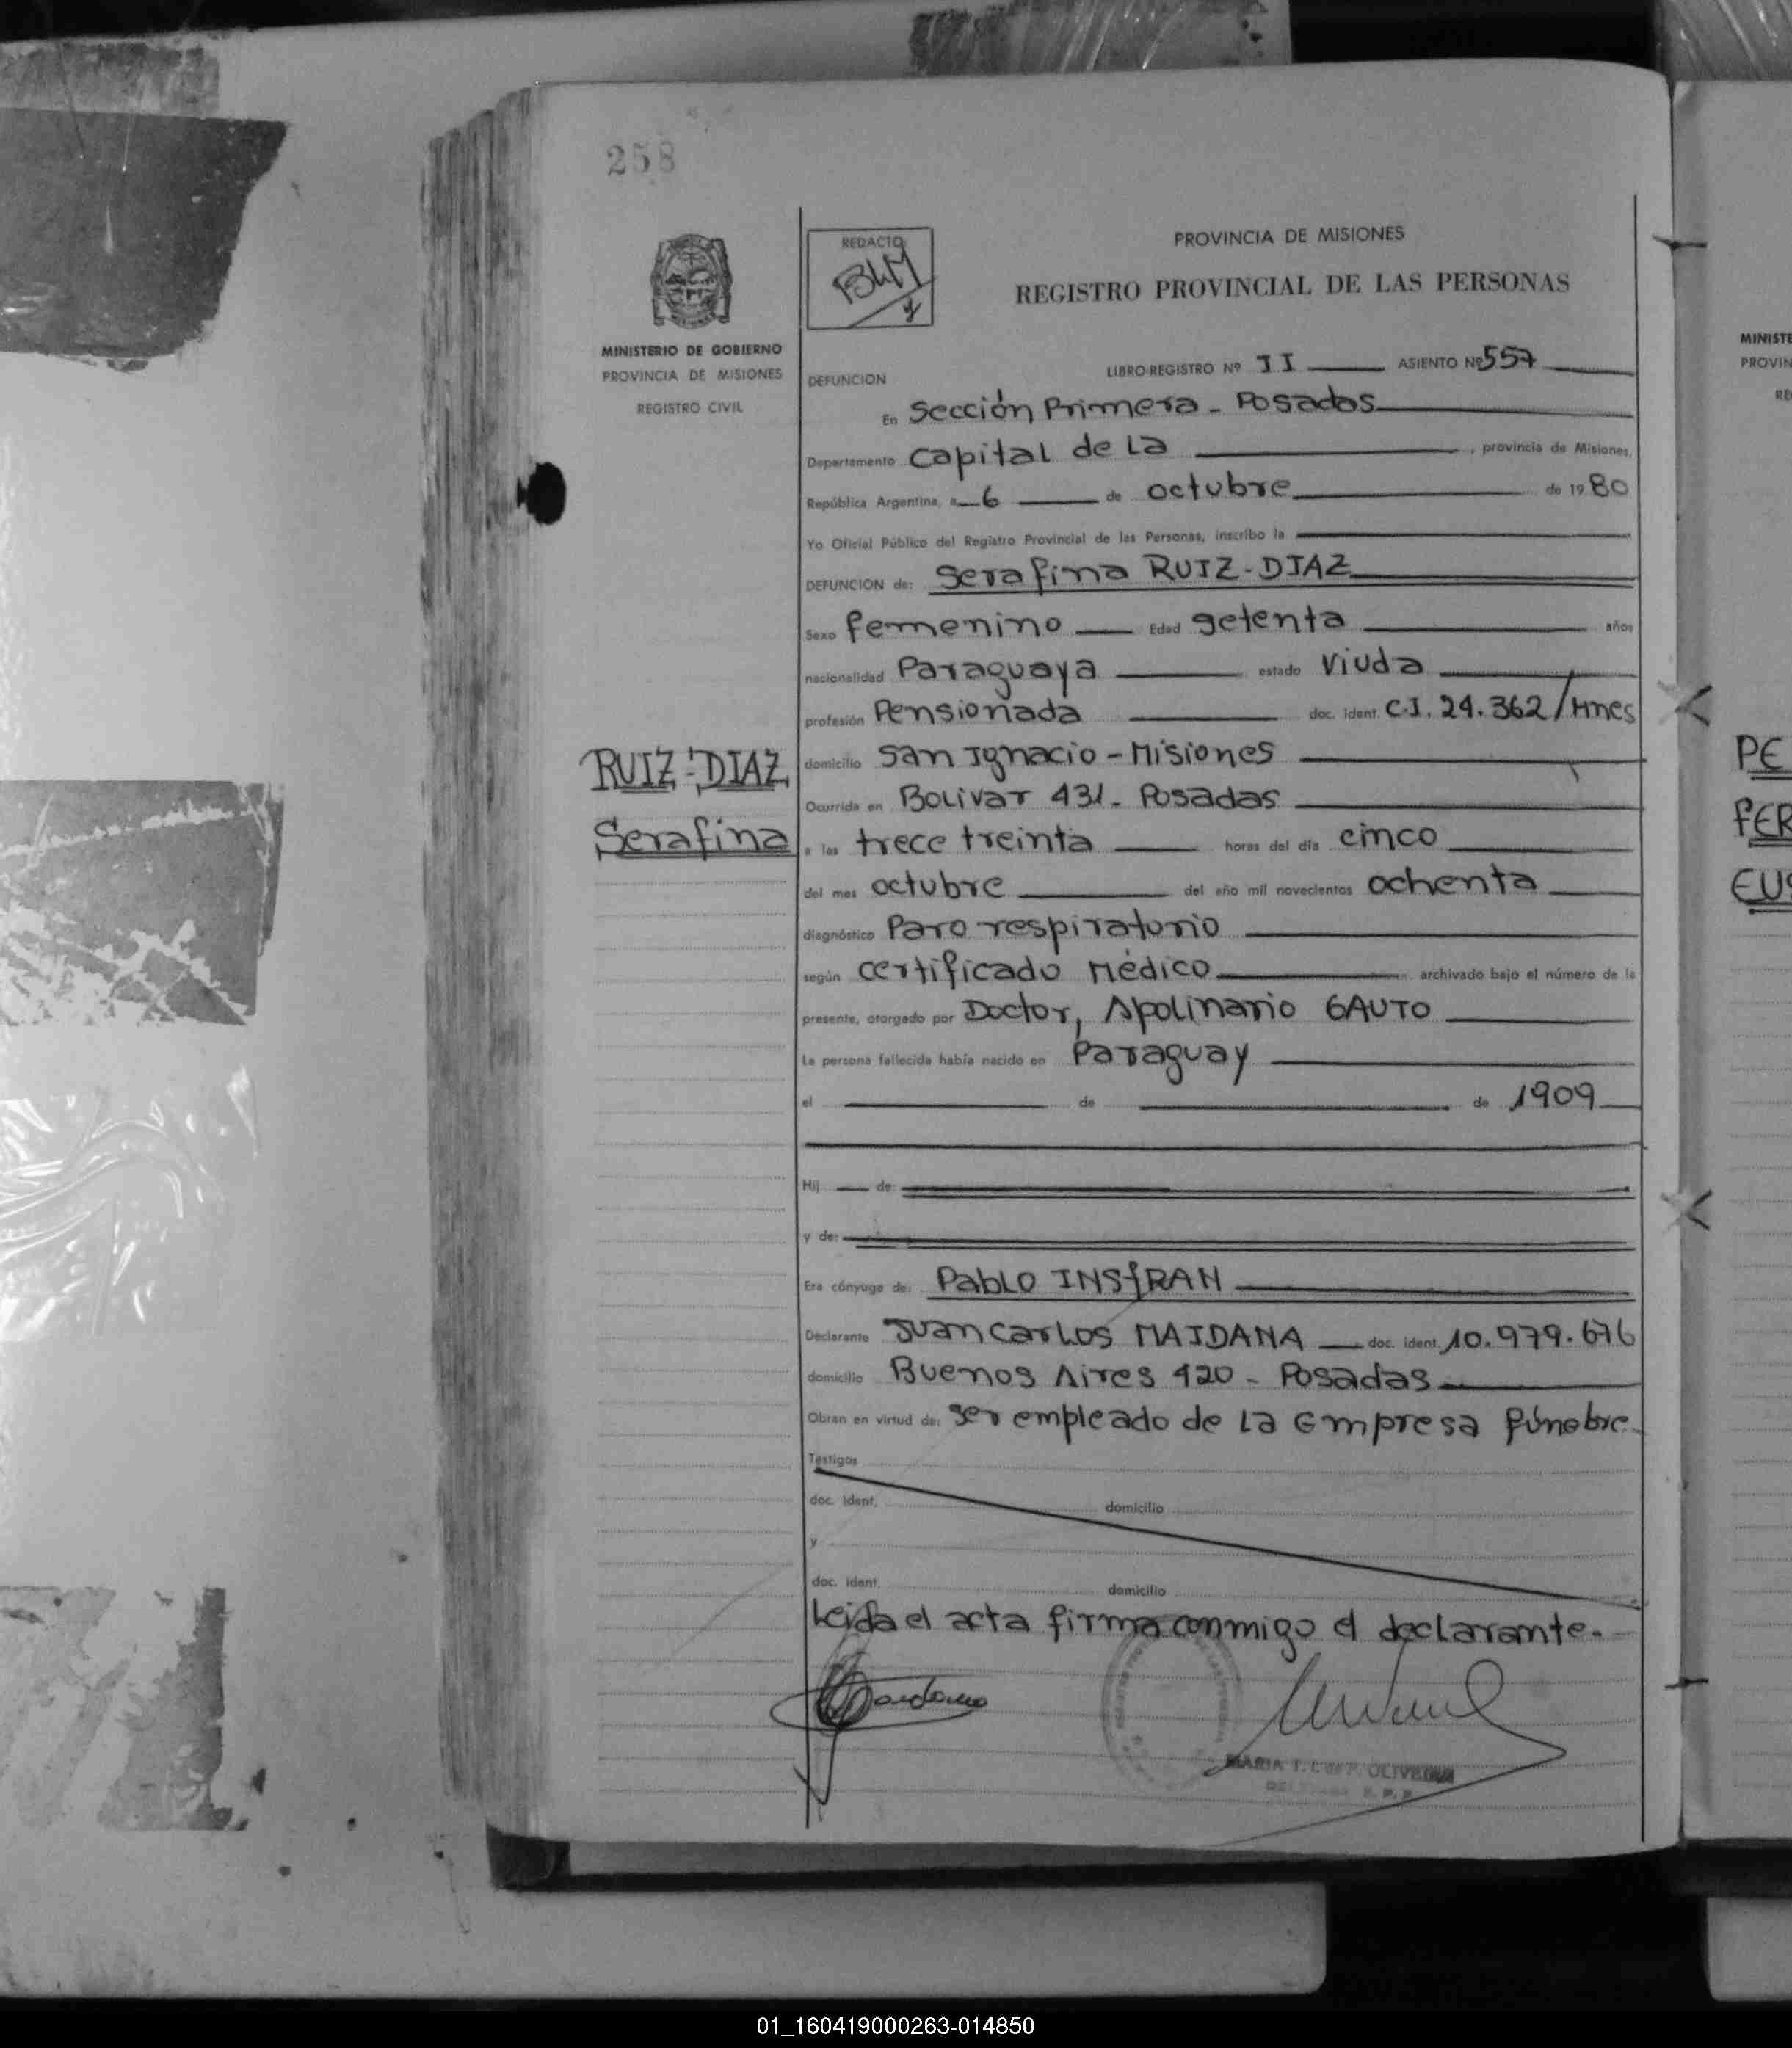 258
REDACTO
PROVINCIA DE MISIONES
REGISTRO PROVINCIAL DE LAS PERSONAS
MINISTERIO DE GOBIERNO
PROVINCIA DE MISIONES
REGISTRO CIVIL
LIBRO-REGISTRO Nº II ASIENTO Nº 557
DEFUNCION
En Sección Primera - Posadas
Departamento Capital de La , provincia de Misiones,
República Argentina, a 6 de octubre de 1980
Yo Oficial Público del Registro Provincial de las Personas, inscribo la
DEFUNCION de: Serafina RUIZ-DIAZ
Sexo femenino Edad setenta años
nacionalidad Paraguaya estado viuda
profesión Pensionada doc. ident. C.I. 24.362/Mnes
RUIZ-DIAZ
Serafina
domicilio San Ignacio - Misiones
Ocurrida en Bolivar 431 - Posadas
a las trece treinta horas del día cinco
del mes octubre del año mil novecientos ochenta
diagnóstico Paro respiratorio
según certificado Médico archivado bajo el número de la
presente, otorgado por Doctor, Apolinario GAUTO
La persona fallecida había nacido en Paraguay
el de de 1909
Hij de:
y de:
Era cónyuge de: Pablo INSfRAN
Declarante Juan Carlos MAIDANA doc. ident. 10.979.676
domicilio Buenos Aires 420 - Posadas
Obran en virtud de: ser empleado de la Empresa fúnebre.
Testigos
doc. ident. domicilio
y
doc. ident. domicilio
Leida el acta firma conmigo el declarante.-
MARIA OLIVEIRA
MINISTE
PROVIN
RE
PE
FER
EUS
01_160419000263-014850